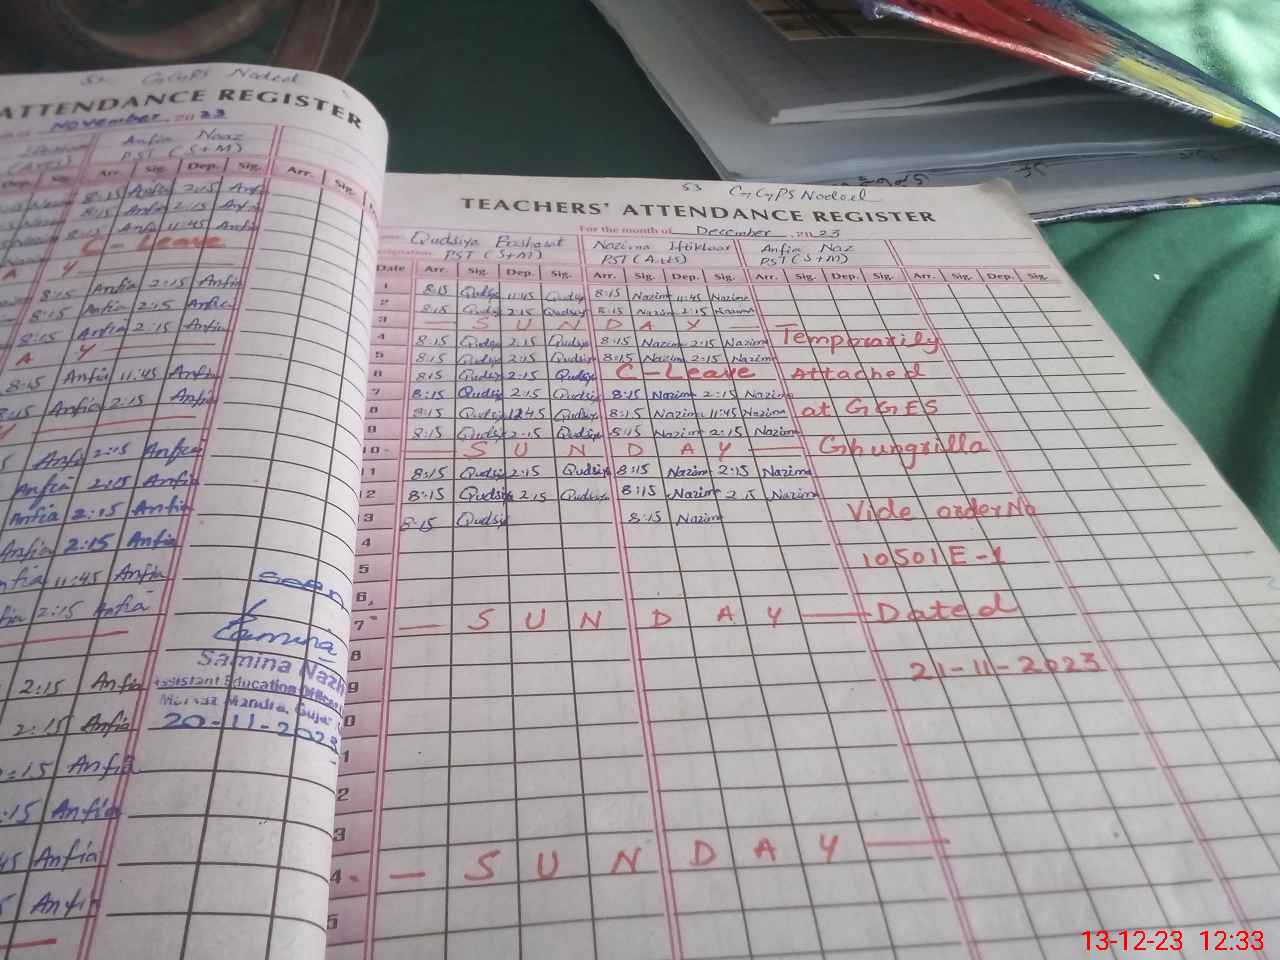 GGPS Nodeel
ATTENDANCE REGISTER
November, 2023
Anfia Naaz
PST (S+M)
Dep. Sig. Arr. Sig. Dep. Sig. Arr. Sig.
8:15 Anfia 2:15 Anfia
8:15 Anfia 2:15 Anfia
8:15 Anfia 11:45 Anfia
C - Leave
A Y
8:15 Anfia 2:15 Anfia
8:15 Anfia 2:15 Anfia
8:15 Anfia 2:15 Anfia
A Y
8:45 Anfia 11:45 Anfia
8:15 Anfia 2:15 Anfia
Y
Anfia 2:15 Anfia
Anfia 2:15 Anfia
Anfia 2:15 Anfia
Anfia 2:15 Anfia
Anfia 11:45 Anfia
Anfia 2:15 Anfia
2:15 Anfia
2:15 Anfia
2:15 Anfia
2:15 Anfia
45 Anfia
Anfia
Seen
Samina
Samina Nazi
Assistant Education Officer
Markaz Mandra, Gujar
20-11-2023
53 GGPS Nodeel
TEACHERS' ATTENDANCE REGISTER
For the month of December, 2023
Qudsiya Prashasat Nazima Iftikhaar Anfia Naz
PST (S+M) PST (Arts) PST (S+M)
Date Arr. Sig. Dep. Sig. Arr. Sig. Dep. Sig. Arr. Sig. Dep. Sig. Arr. Sig. Dep. Sig.
1 8:15 Qudsiy 11:45 Qudsiy 8:15 Nazima 11:45 Nazima
2 8:15 Qudsiy 2:15 Qudsiy 8:15 Nazima 2:15 Nazima
3 — S U N D A Y —
4 8:15 Qudsiy 2:15 Qudsiy 8:15 Nazima 2:15 Nazima Temporarily
5 8:15 Qudsiy 2:15 Qudsiy 8:15 Nazima 2:15 Nazima
6 8:15 Qudsiy 2:15 Qudsiy C - Leave Attached
7 8:15 Qudsiy 2:15 Qudsiy 8:15 Nazima 2:15 Nazima
8 8:15 Qudsiy 12:45 Qudsiy 8:15 Nazima 11:45 Nazima at GGES
9 8:15 Qudsiy 2:15 Qudsiy 8:15 Nazima 2:15 Nazima
10 — S U N D A Y — Ghungrilla
11 8:15 Qudsiy 2:15 Qudsiy 8:15 Nazima 2:15 Nazima
12 8:15 Qudsiy 2:15 Qudsiy 8:15 Nazima 2:15 Nazima
3 8:15 Qudsiy 8:15 Nazima Vide order No
4
5 10501E-1
6
7 — S U N D A Y — Dated
8
9 21-11-2023
0
1
2
3
4 — S U N D A Y —
5
13-12-23 12:33